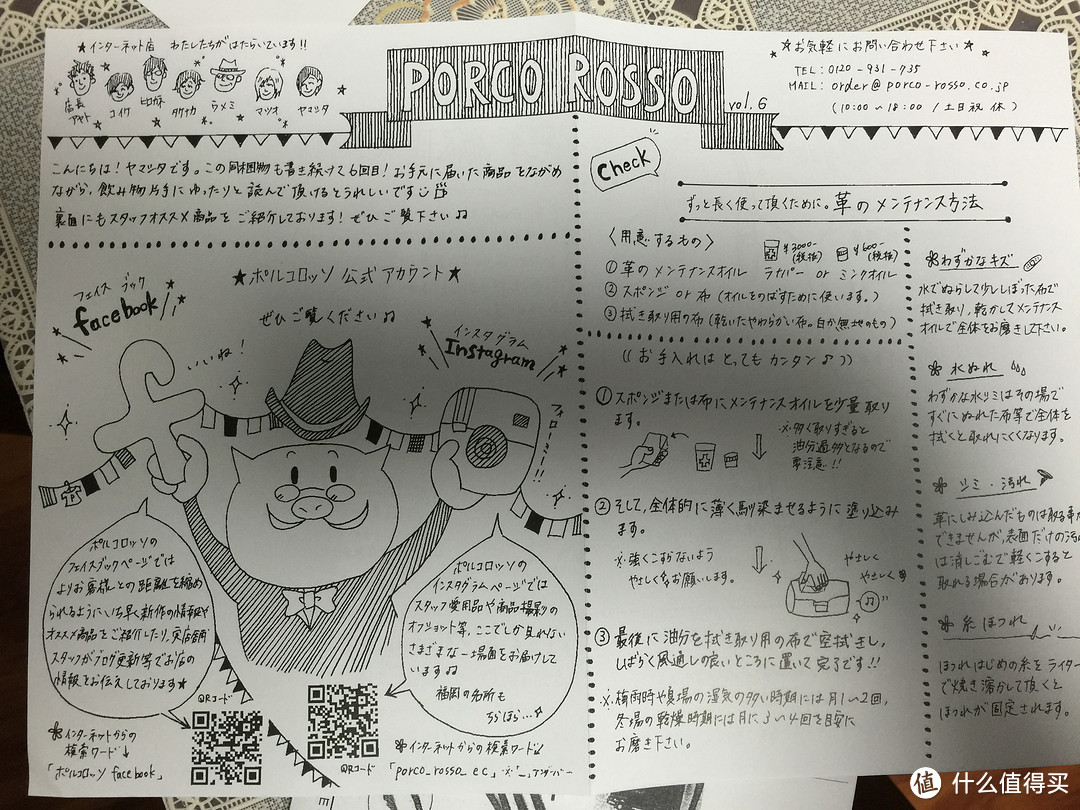 ★インターネット店 わたしたちがはたらいています!!
店長
アヤト
コイケ
ヒロカネ
タケナカ
ウメミ
マツオ
ヤマシタ
PORCO ROSSO
vol.6
☆お気軽にお問い合わせ下さい☆
TEL:0120-931-735
MAIL:order@porco-rosso.co.jp
(10:00~18:00/土日祝休)
こんにちは!ヤマシタです。この同梱物も書き続けて6回目!お手元に届いた商品をながめ
ながら、飲み物片手にゆったりと読んで頂けるとうれしいです
裏面にもスタッフオススメ商品をご紹介しております!ぜひご覧下さい♫
★ポルコロッソ公式アカウント★
ぜひご覧ください♫
フェイスブック
facebook
いいね!
インスタグラム
Instagram
フォロー!!
ポルコロッソの
フェイスブックページでは
よりお客様との距離を縮め
られるようにいち早く新作の情報や
オススメ商品をご紹介したり、実店舗
スタッフがブログ更新等でお店の
情報をお伝えしております★
ポルコロッソの
インスタグラムページでは
スタッフ愛用品や商品撮影の
オフショット等、ここでしか見れない
さまざまな一場面をお届けして
います♫
福岡の名所も
ちらほら…
QRコード
QRコード
❋インターネットからの
検索ワード↓
「ポルコロッソ facebook」
❋インターネットからの検索ワード↓
「porco_rosso_ec」※「_」アンダーバー
Check
ずっと長く使って頂くために。革のメンテナンス方法
〈用意するもの〉
¥3000-
(税抜)
¥600-
(税抜)
①革のメンテナンスオイル ラナパー or ミンクオイル
②スポンジ or 布(オイルをのばすために使います。)
③拭き取り用の布(乾いたやわらかい布。白か無地のもの)
((お手入れはとってもカンタン♪))
①スポンジまたは布にメンテナンスオイルを少量取り
ます。
※多く取りすぎると
油分過多となるので
要注意!!
②そして、全体的に薄く馴染ませるように塗り込み
ます。
※強くこすらないよう
やさしくをお願いします。
やさしく
やさしく
③最後に油分を拭き取り用の布で空拭きし、
しばらく風通しの良いところに置いて完了です!!
※梅雨時や夏場の湿気の多い時期には月1~2回、
冬場の乾燥時期には月に3~4回を目安に
お磨き下さい。
❋わずかなキズ
水でぬらして少ししぼった布で
拭き取り、乾かしてメンテナンス
オイルで全体をお磨きして下さい。
❋水ぬれ
わずかな水ジミはその場で
すぐにぬれた布等で全体を
拭くと取れにくくなります。
❋シミ・汚れ
革にしみ込んだものは取る事が
できませんが、表面だけの汚れ
は消しごむで軽くこすると
取れる場合があります。
❋糸ほつれ
ほつれはじめの糸をライター
で焼き溶かして頂くと
ほつれが固定されます。
值 什么值得买